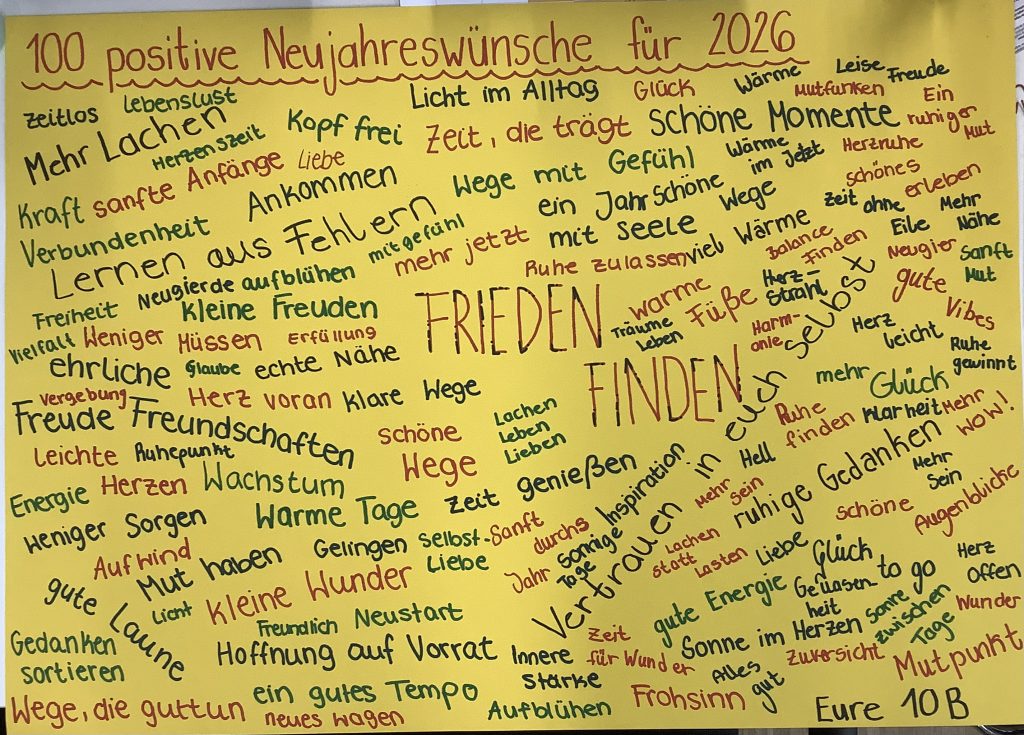 100 positive Neujahreswünsche für 2026
zeitlos
Lebenslust
Licht im Alltag
Glück
Wärme
Leise
Freude
Mutfunken
Mehr Lachen
Herzenszeit
Kopf frei
Zeit, die trägt
Schöne Momente
Ein ruhiger Mut
Kraft
sanfte Anfänge
Liebe
Ankommen
Wege mit Gefühl
Wärme im Jetzt
Herzruhe
schönes erleben
Verbundenheit
ein Jahr
Schöne Wege
Zeit ohne Eile
Mehr Nähe
Lernen aus Fehlern
mitgefühl
mehr jetzt
mit Seele
viel Wärme
Balance finden
Neugier
Sanft Mut
Neugierde
aufblühen
Ruhe zulassen
Herz-
Strahl
gute Vibes
Freiheit
kleine Freuden
FRIEDEN
FINDEN
warme Füße
Träume Leben
Harm-
onie
Vielfalt
Weniger Müssen
Erfüllung
Herz leicht
Ruhe gewinnt
ehrliche Freude
Glaube
echte Nähe
mehr Glück
vergebung
Herz voran
klare Wege
Lachen
Leben
Lieben
Ruhe finden
Klarheit
Mehr WOW!
Freundschaften
Leichte Herzen
Ruhepunkt
schöne Wege
Hell
ruhige Gedanken
Mehr Sein
Energie
Wachstum
Zeit genießen
Inspiration
Mehr sein
schöne Augenblicke
Weniger Sorgen
Warme Tage
Selbst-
Liebe
Sanft durchs Jahr
Sonnige Tage
Vertrauen in euch selbst
Lachen statt Lasten
Liebe
Glück to go
Aufwind
Mut haben
Gelingen
Herz Offen
gute Laune
Licht
Kleine Wunder
gute Energie
Gelassen
heit
Sonne zwischen Tage
Wunder
Freundlich
Neustart
Gedanken sortieren
Hoffnung auf Vorrat
Innere Stärke
Zeit für Wunder
Sonne im Herzen
Alles gut
Zuversicht
Mutpunkt
Wege, die guttun
ein gutes Tempo
neues wagen
Aufblühen
Frohsinn
Eure 10B